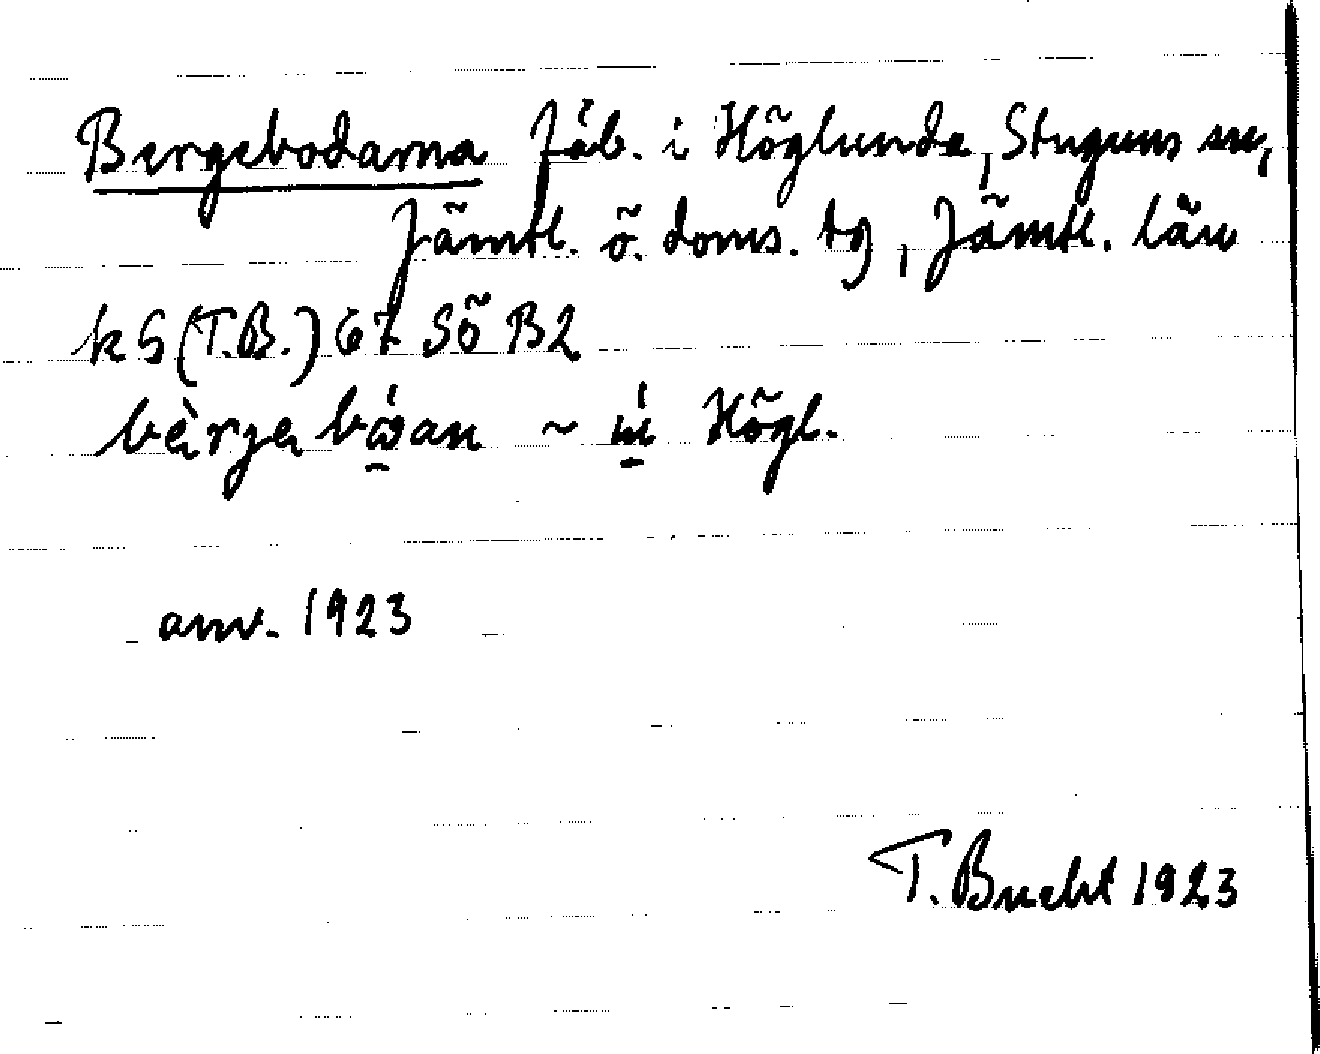 Bergebodarna fäb. i Höglunda, Stuguns sn,
Jämtl. ö. doms. tg, Jämtl. län
k S (T.B.) 67 SÖ B2
bèrgebώan ~ i Högl.
anv. 1923
T. Bucht 1923